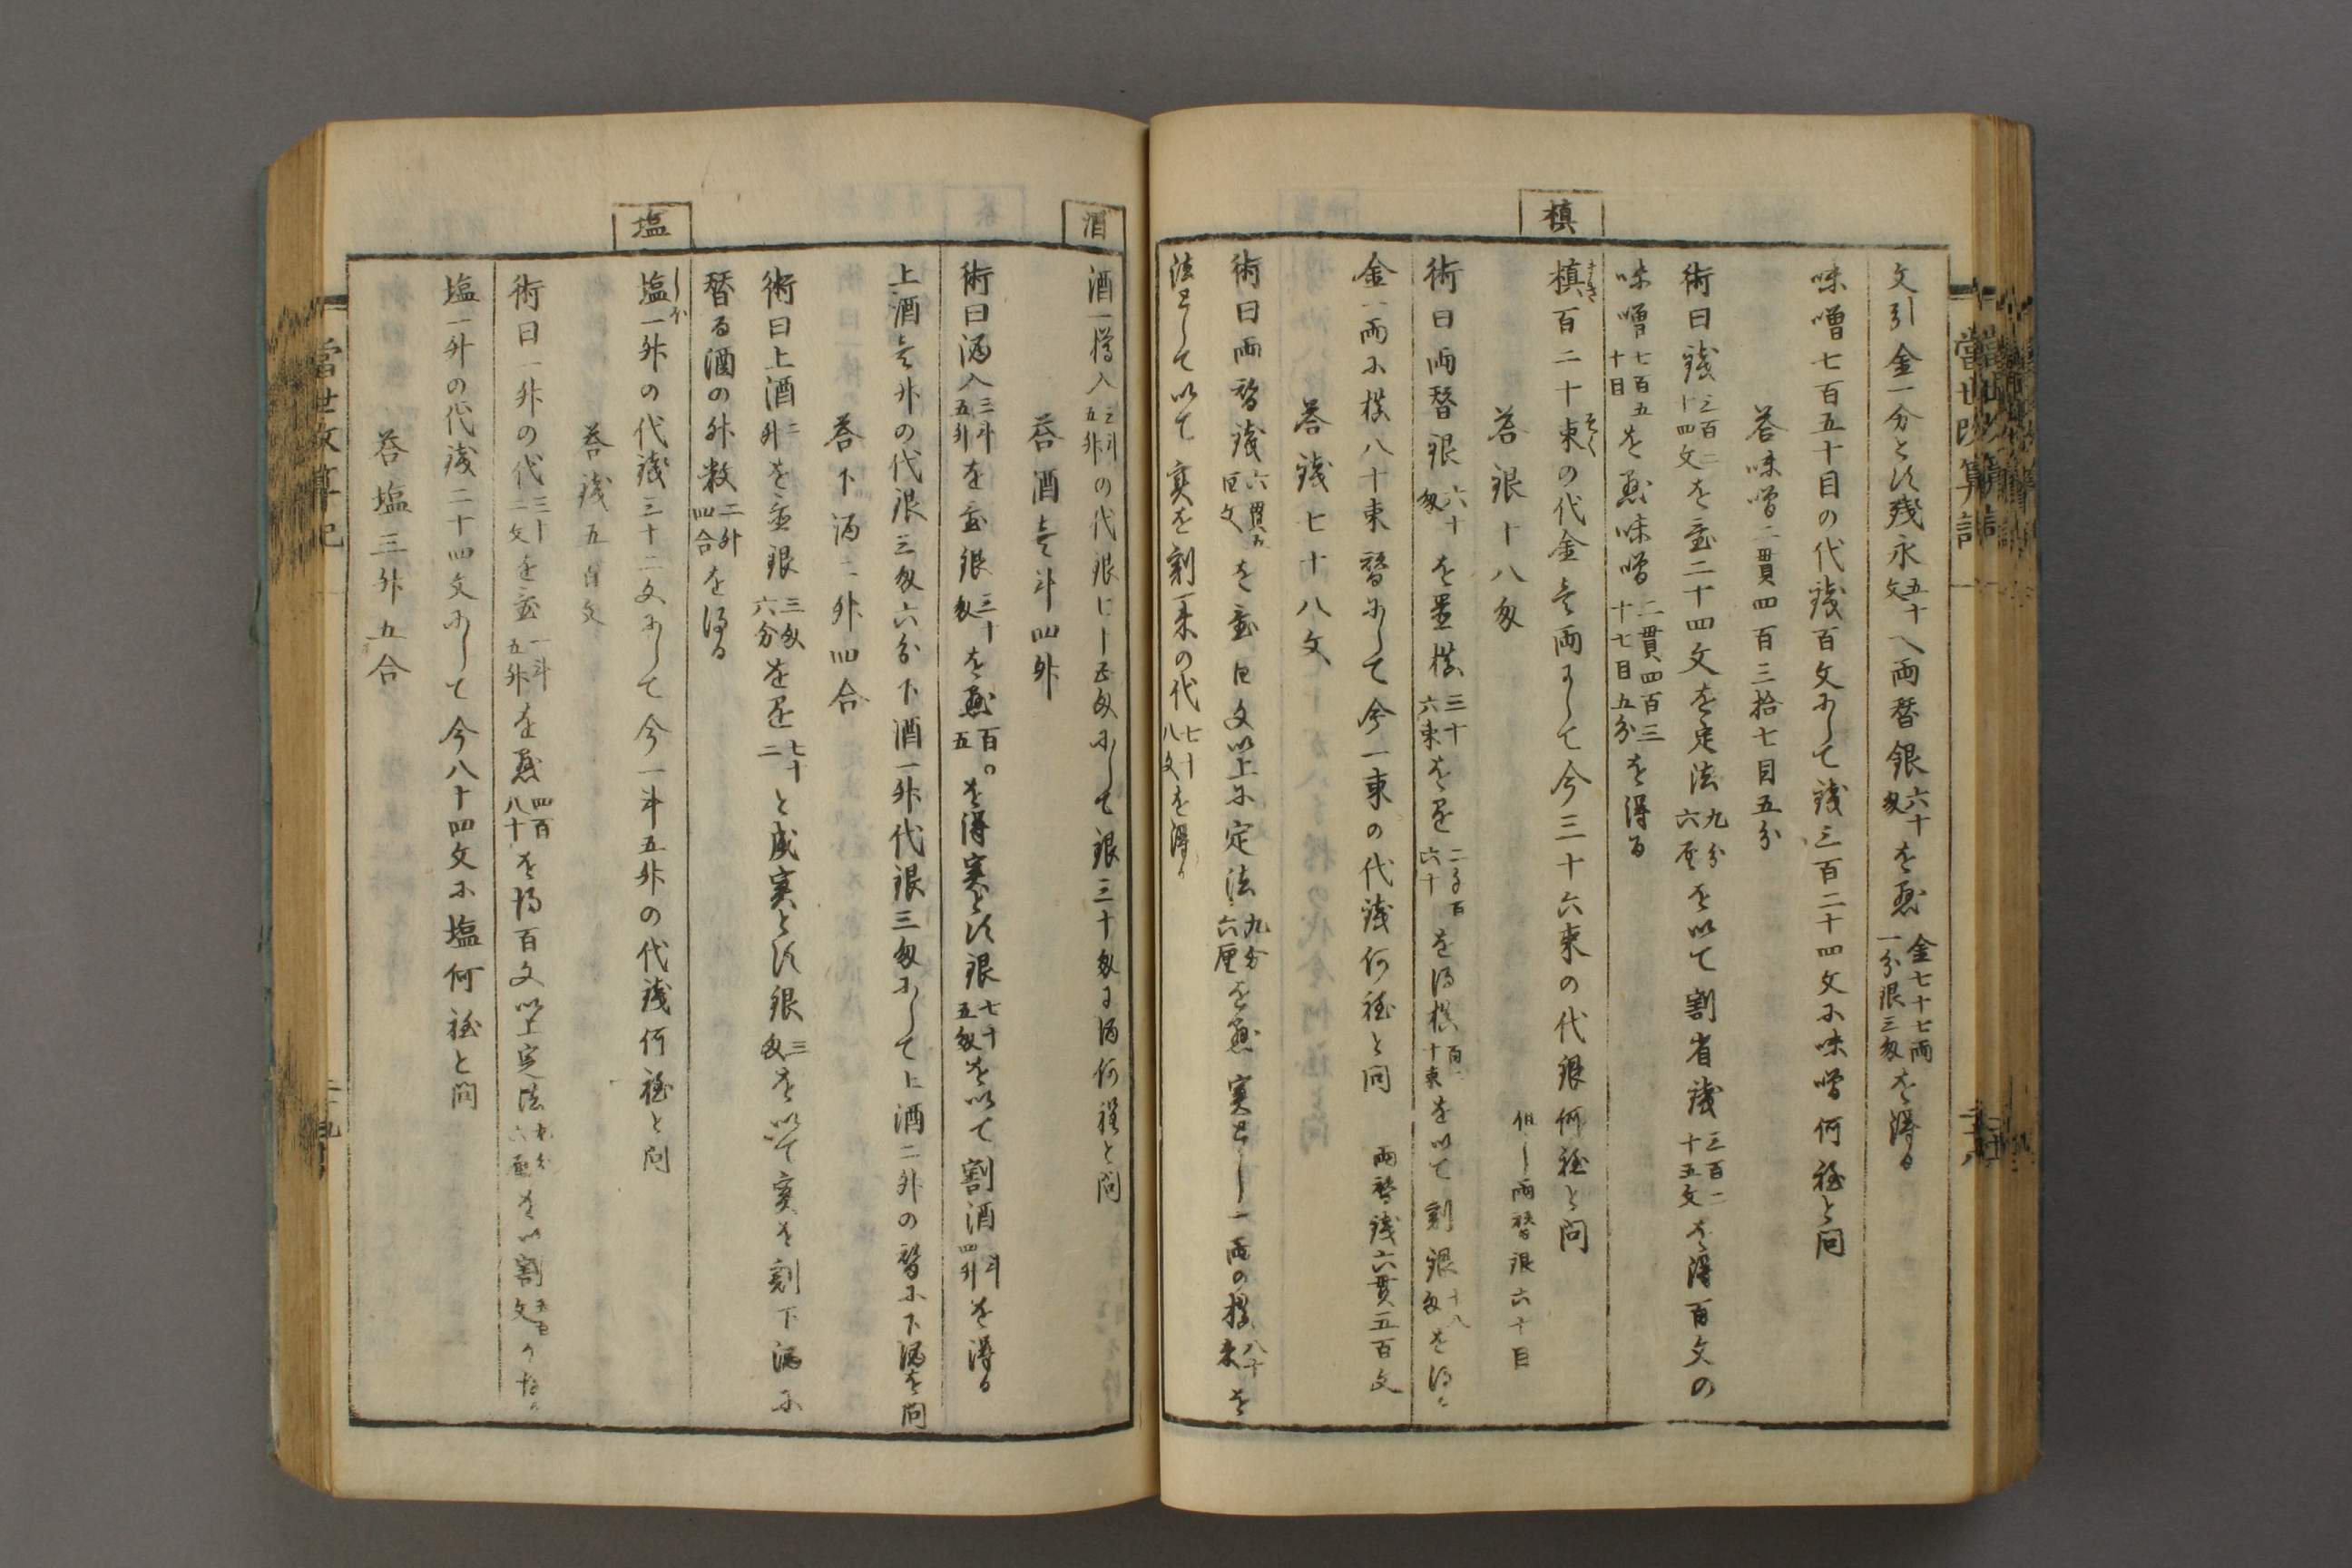 文引金一分と此残永五十文へ両替銀六十匁を乗金七十七両一分銀三匁を得る
味噌七百五十目の代銭百文にして銭三百二十四文に味噌何程と問
答味噌二貫四百三拾七目五分
術曰銭三百二十四文を置二十四文を定法九分六厘を以て割省銭三百二十五文を得百文の
味噌七百五十目を乗味噌二貫四百三十七目五分を得る
槙
槙百二十束の代金壱両にして今三十六束の代銀何程と問
但し両替銀六十目
答銀十八匁
術曰両替銀六十匁を置槙三十六束を乗二千百六十を得槙百二十束を以て割銀十八匁を得る
金一両に槙八十束替にして今一束の代銭何程と問 両替銭六貫五百文
答銭七十八文
術曰両替銭六貫五百文を置百文以上に定法九分六厘を乗実とし一両の槙八十束を
法として以て実を割一束の代七十八文を得る
酒
酒一樽入三斗五升の代銀七十五匁にして銀三十匁に酒何程と問
答酒壱斗四升
術曰酒入三斗五升を置銀三十匁を乗百〇五を得実と此銀七十五匁を以て割酒斗四升を得る
上酒壱升の代銀三匁六分下酒一升代銀三匁にして上酒二升の替に下酒を問
答下酒二升四合
術曰上酒二升を置銀三匁六分を乗七十二と成実と此銀三匁を以て実を割下酒に
替る酒の升数二升四合を得る
塩
塩一升の代銭三十二文にして今一斗五升の代銭何程と問
答銭五百文
術曰一升の代三十二文を置一斗五升を乗四百八十を得百文以上定法九分六厘を以割五百文
塩一升の代銭二十四文にして今八十四文に塩何程と問
答塩三升五合
當世改算記